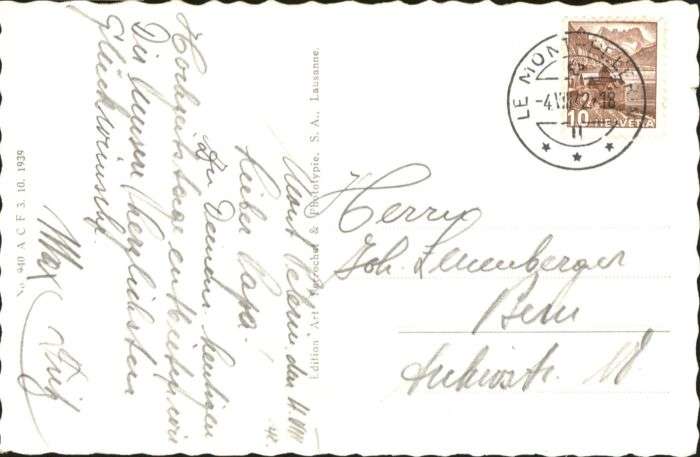 Mont Pelerin den 4. VIII
42.
Lieber Papa!
Zu Deinem heutigen
Hochzeitstage entbieten wir
Dir unsere herzlichsten
Glückwünsche.
Max
No. 940 A C F 3. 10. 1939
Edition Art. Perrochet & Phototypie, S. A., Lausanne.
LE MONT
-4.VIII.42.-18
10 HELVETIA
Herrn
Joh. Leuenberger
Bern
18